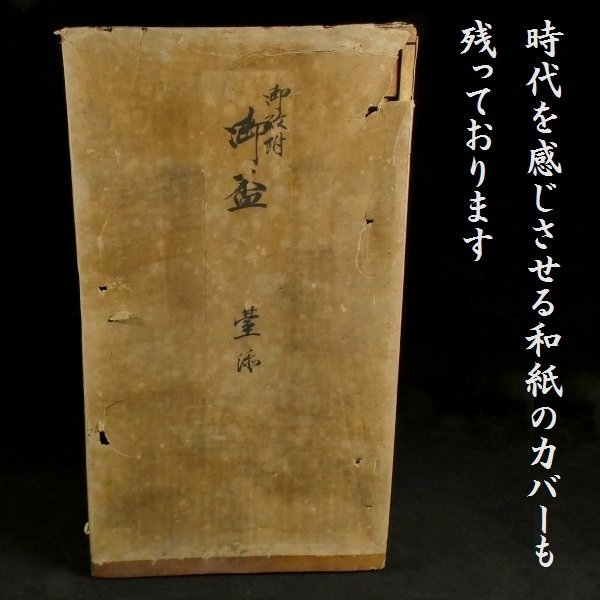 時代を感じさせる和紙のカバーも
残っております
御紋附
御盃
臺添